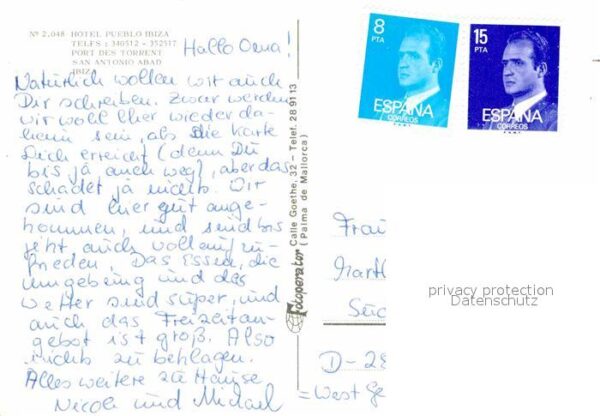 Nº 2.048 HOTEL PUEBLO IBIZA
TELFS : 340512 - 352517
PORT DES TORRENT
SAN ANTONIO ABAD
IBIZA
Hallo Oma!
Natürlich wollen wir auch
Dir schreiben. Zwar werden
wir wohl eher wieder da-
heim sein, als die Karte
Dich erreicht (denn Du
bis ja auch weg), aber das
schadet ja nichts. Wir
sind hier gut ange-
kommen, und sind bis
jetzt auch vollauf zu-
frieden. Das Essen, die
Umgebung und das
Wetter sind super, und
auch das Freizeitan-
gebot ist groß. Also
nichts zu beklagen.
Alles weitere zu Hause
Nicole und Michael
Fotoperator Calle Goethe, 32 - Telef. 28 91 13
(Palma de Mallorca)
8
PTA
ESPAÑA
CORREOS
15
PTA
ESPAÑA
CORREOS
Frau
privacy protection
Datenschutz
D-28
= West Ge